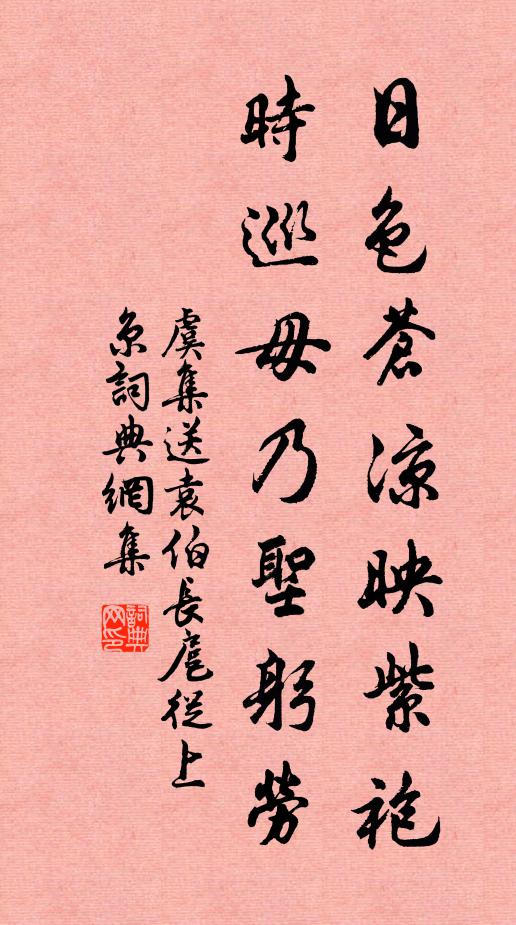 日色蒼涼映紫袍
時巡毋乃聖躬勞
虞集送袁伯長扈從上
京詞典網集
詞典
网印